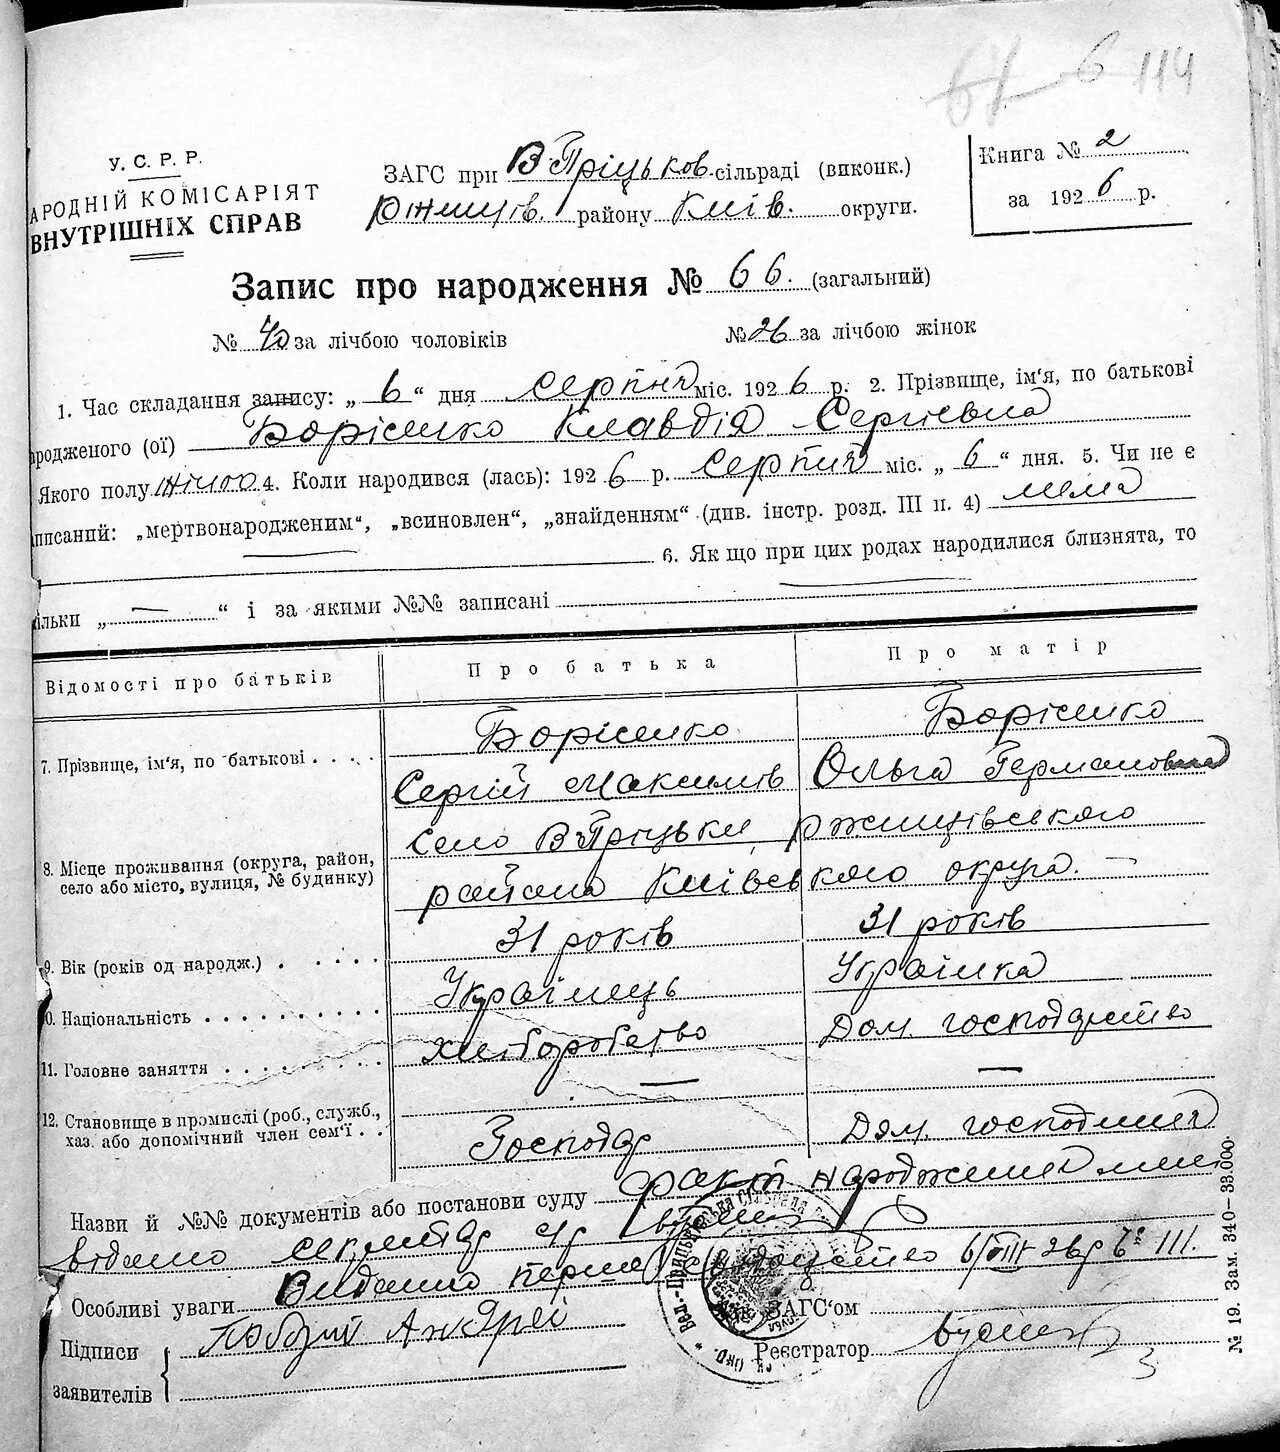 6 114
У. С. Р. Р.
АРОДНІЙ КОМІСАРІЯТ
ВНУТРІШНІХ СПРАВ
ЗАГС при В Пріцьков. сільраді (виконк.)
Ржищів. району Київ. округи.
Книга № 2
за 1926 р.
Запис про народження № 66. (загальний)
№ 40 за лічбою чоловіків № 26 за лічбою жінок
1. Час складання запису: „ 6 “ дня Серпня міс. 1926 р. 2. Прізвище, ім'я, по батькові
родженого (ої) Борісенко Клавдія Сергієвна
Якого полу жіноч 4. Коли народився (лась): 1926 р. Серпня міс. „ 6 “ дня. 5. Чи не є
писаний: „мертвонародженим“, „всиновлен“, „знайденням“ (див. інстр. розд. III п. 4) нема
6. Як що при цих родах народилися близнята, то
ільки „ — “ і за якими №№ записані
Відомості про батьків Про батька Про матір
7. Прізвище, ім'я, по батькові Борісенко Борісенко
Сергій Максимів Ольга Германовна
8. Місце проживання (округа, район, село або місто, вулиця, № будинку) Село В Пріцьки, Ржищівського
района Київського округа. —
9. Вік (років од народж.) 31 років 31 років
0. Національність Українець Українка
11. Головне заняття хліборобство Дом. господарство
12. Становище в промислі (роб., служб., — —
хаз. або допомічний член сем'ї Господар Дом. господиня
Назви й №№ документів або постанови суду факт народження мені
відомо секретар с/р
Особливі уваги Видано перше свідоцтво 6/VIII 26 р № 111.
Підписи заявителів Андрей
Зав. ЗАГС'ом
Реєстратор
№ 19. Зам. 340—33.000.